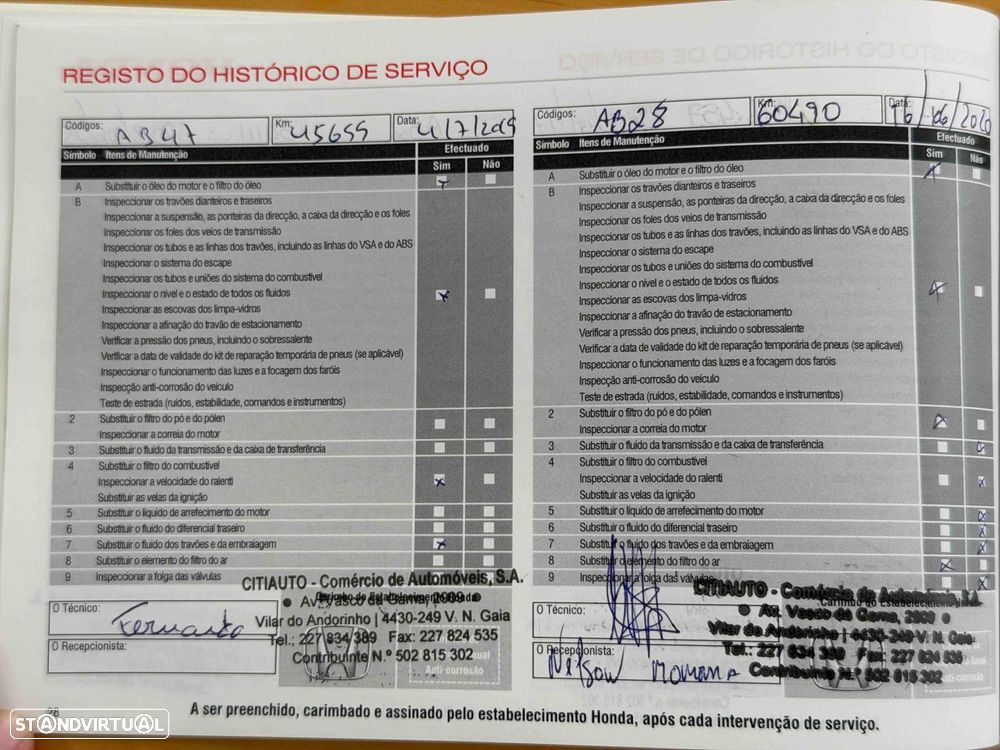 REGISTO DO HISTÓRICO DE SERVIÇO
Códigos: AB47 Km: 45655 Data: 4/7/2019
Símbolo Itens de Manutenção Efectuado
Sim Não
A Substituir o óleo do motor e o filtro do óleo
B Inspeccionar os travões dianteiros e traseiros
Inspeccionar a suspensão, as ponteiras da direcção, a caixa da direcção e os foles
Inspeccionar os foles dos veios de transmissão
Inspeccionar os tubos e as linhas dos travões, incluindo as linhas do VSA e do ABS
Inspeccionar o sistema do escape
Inspeccionar os tubos e uniões do sistema do combustível
Inspeccionar o nível e o estado de todos os fluidos
Inspeccionar as escovas dos limpa-vidros
Inspeccionar a afinação do travão de estacionamento
Verificar a pressão dos pneus, incluindo o sobressalente
Verificar a data de validade do kit de reparação temporária de pneus (se aplicável)
Inspeccionar o funcionamento das luzes e a focagem dos faróis
Inspecção anti-corrosão do veículo
Teste de estrada (ruídos, estabilidade, comandos e instrumentos)
2 Substituir o filtro do pó e do pólen
Inspeccionar a correia do motor
3 Substituir o fluido da transmissão e da caixa de transferência
4 Substituir o filtro do combustível
Inspeccionar a velocidade do ralenti
Substituir as velas da ignição
5 Substituir o líquido de arrefecimento do motor
6 Substituir o fluido do diferencial traseiro
7 Substituir o fluido dos travões e da embraiagem
8 Substituir o elemento do filtro do ar
9 Inspeccionar a folga das válvulas
CITIAUTO - Comércio de Automóveis, S.A.
Av. Vasco da Gama, 2989
Vilar do Andorinho | 4430-249 V. N. Gaia
Tel.: 227 834 389 Fax: 227 824 535
Contribuinte N.º 502 815 302
O Técnico: Fernando
O Recepcionista:
Anti-corrosão
28
Códigos: AB28 Km: 60490 Data: 16/06/2020
Símbolo Itens de Manutenção Efectuado
Sim Não
A Substituir o óleo do motor e o filtro do óleo
B Inspeccionar os travões dianteiros e traseiros
Inspeccionar a suspensão, as ponteiras da direcção, a caixa da direcção e os foles
Inspeccionar os foles dos veios de transmissão
Inspeccionar os tubos e as linhas dos travões, incluindo as linhas do VSA e do ABS
Inspeccionar o sistema do escape
Inspeccionar os tubos e uniões do sistema do combustível
Inspeccionar o nível e o estado de todos os fluidos
Inspeccionar as escovas dos limpa-vidros
Inspeccionar a afinação do travão de estacionamento
Verificar a pressão dos pneus, incluindo o sobressalente
Verificar a data de validade do kit de reparação temporária de pneus (se aplicável)
Inspeccionar o funcionamento das luzes e a focagem dos faróis
Inspecção anti-corrosão do veículo
Teste de estrada (ruídos, estabilidade, comandos e instrumentos)
2 Substituir o filtro do pó e do pólen
Inspeccionar a correia do motor
3 Substituir o fluido da transmissão e da caixa de transferência
4 Substituir o filtro do combustível
Inspeccionar a velocidade do ralenti
Substituir as velas da ignição
5 Substituir o líquido de arrefecimento do motor
6 Substituir o fluido do diferencial traseiro
7 Substituir o fluido dos travões e da embraiagem
8 Substituir o elemento do filtro do ar
9 Inspeccionar a folga das válvulas
CITIAUTO - Comércio de Automóveis, S.A.
Av. Vasco da Gama, 2989
Vilar do Andorinho | 4430-249 V. N. Gaia
Tel.: 227 834 389 Fax: 227 824 535
Contribuinte N.º 502 815 302
O Técnico:
O Recepcionista: Nelson
A ser preenchido, carimbado e assinado pelo estabelecimento Honda, após cada intervenção de serviço.
STANDVIRTUAL